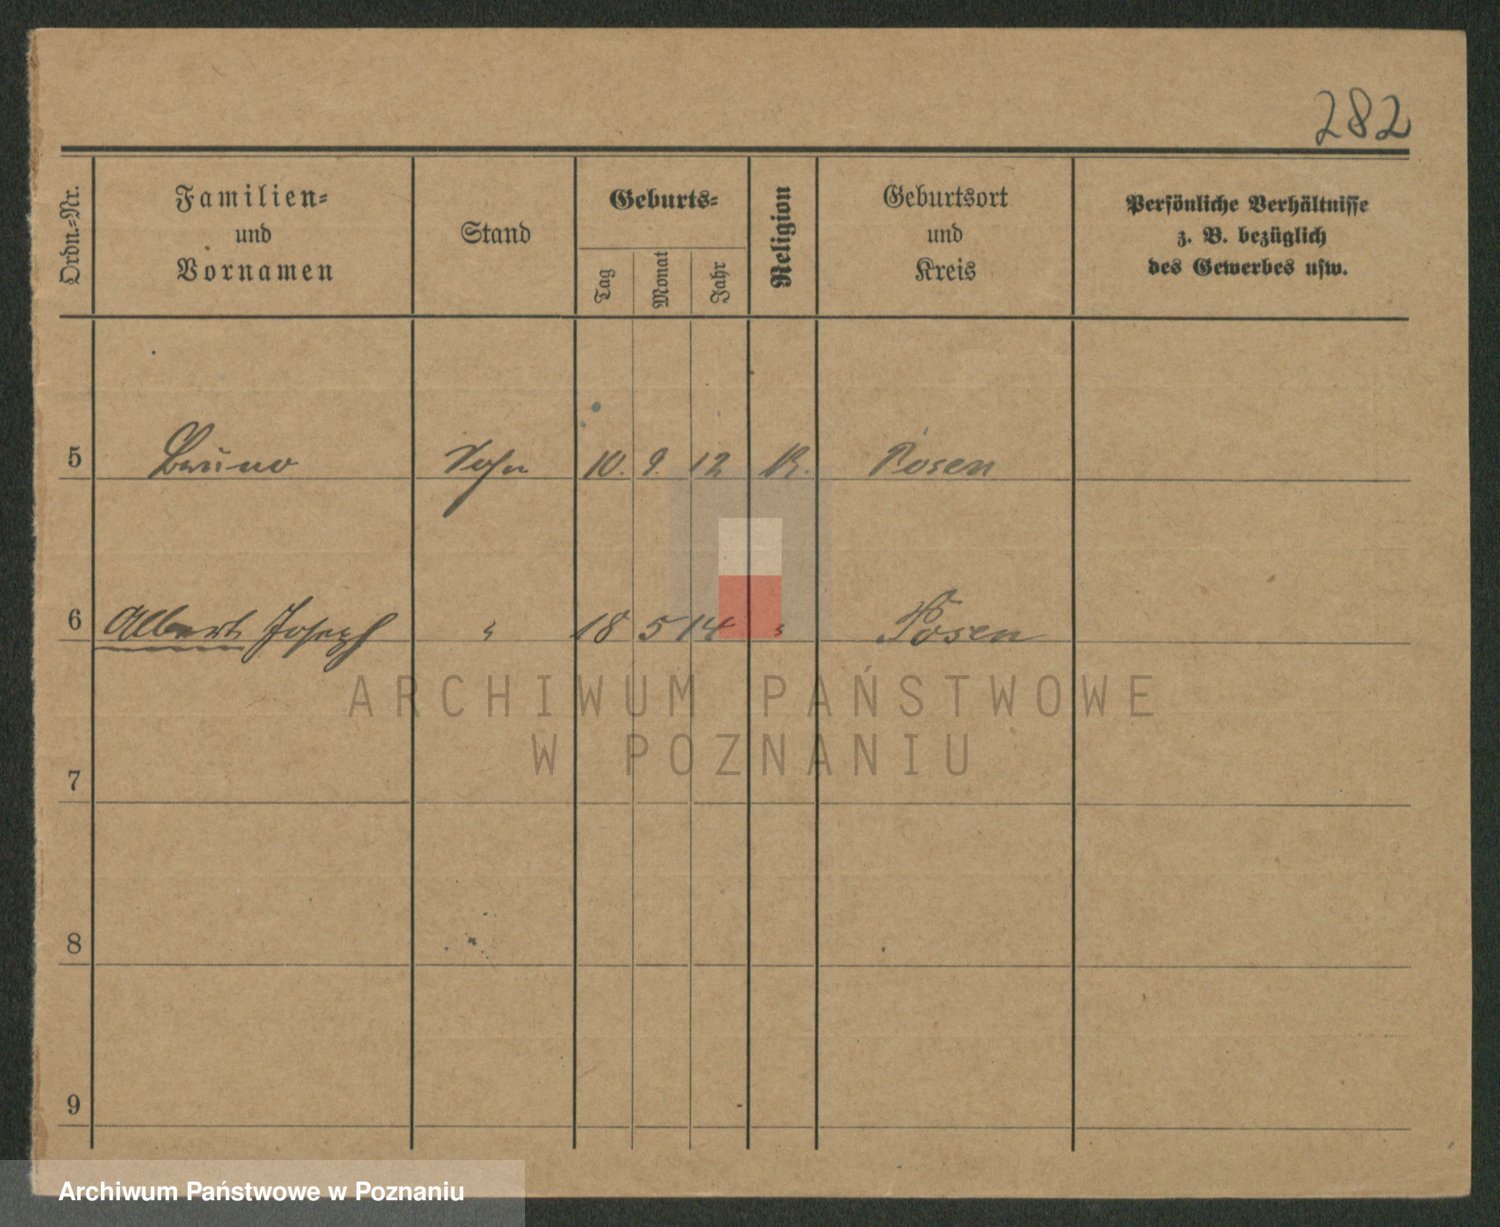 282
Ordn.-Nr.
Familien-
und
Vornamen
Stand
Geburts-
Tag
Monat
Jahr
Religion
Geburtsort
und
Kreis
Persönliche Verhältnisse
z. B. bezüglich
des Gewerbes usw.
5 Bruno Sohn 10. 9. 12 K. Posen
6 Albert Joseph " 18 5 14 " Posen
ARCHIWUM PAŃSTWOWE
W POZNANIU
7
8
9
Archiwum Państwowe w Poznaniu